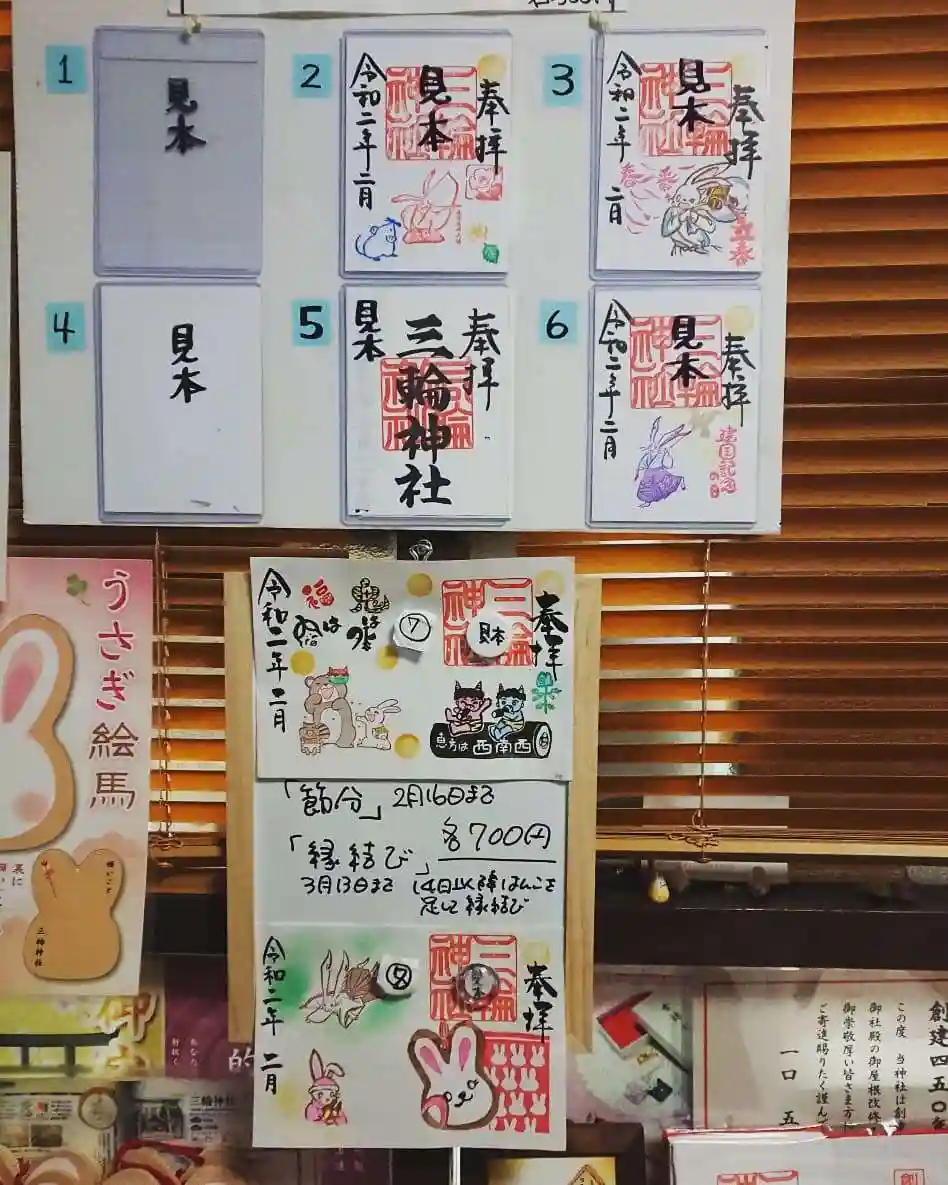 1
見本
2
奉拝
三輪神社
見本
令和二年二月
3
奉拝
三輪神社
見本
令和二年
二月
立春
4
見本
5
奉拝
三輪神社
見本
6
奉拝
三輪神社
見本
令和二年二月
建国記念の日
奉拝
三輪神社
見本
7
福は
令和二年二月
恵方は西南西
「節分」2月16日まで
各700円
「縁結び」
3月13日まで
14日以降はんこを
足して縁結び
奉拝
三輪神社
令和二年
二月
うさぎ絵馬
三輪神社
創建四五〇年
この度 当神社は創
御社殿の御屋根改修
御崇敬厚い皆さま方に
ご寄進賜りたく謹んで
一口 五